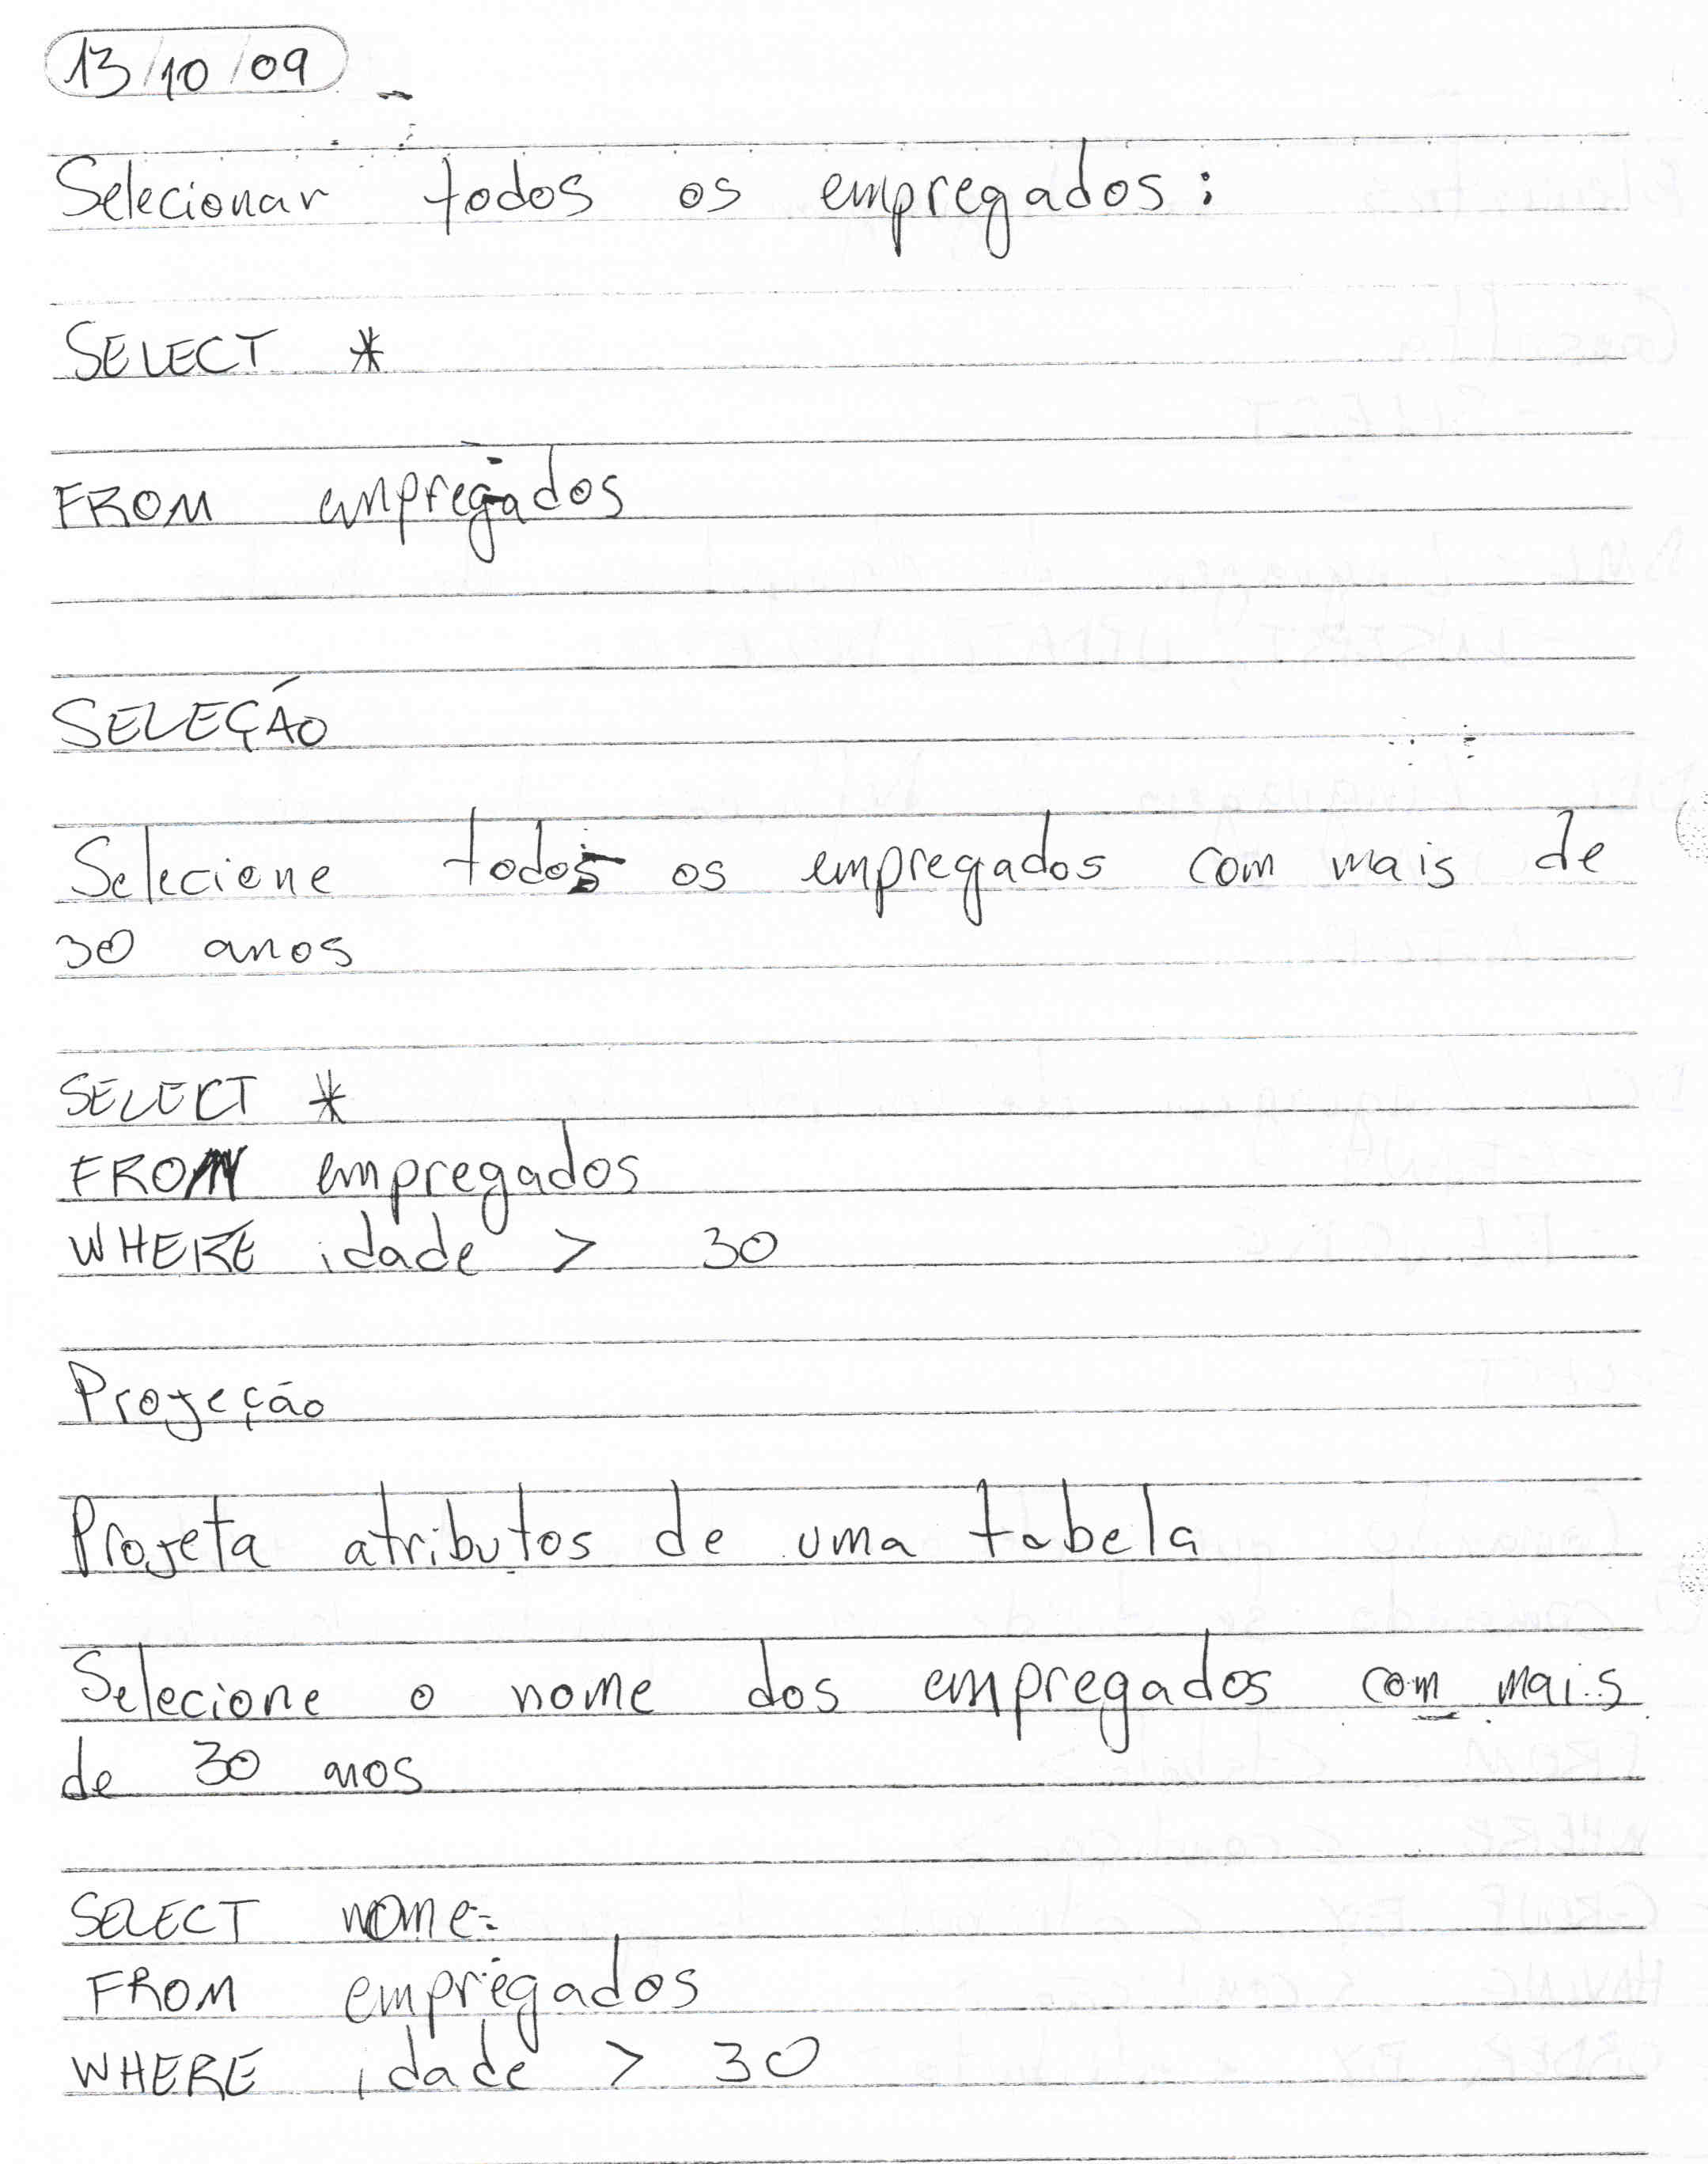 13/10/09
Selecionar todos os empregados:
SELECT *
FROM empregados
SELEÇÃO
Selecione todos os empregados com mais de
30 anos
SELECT *
FROM empregados
WHERE idade > 30
Projeção
Projeta atributos de uma tabela
Selecione o nome dos empregados com mais
de 30 anos
SELECT nome
FROM empregados
WHERE idade > 30